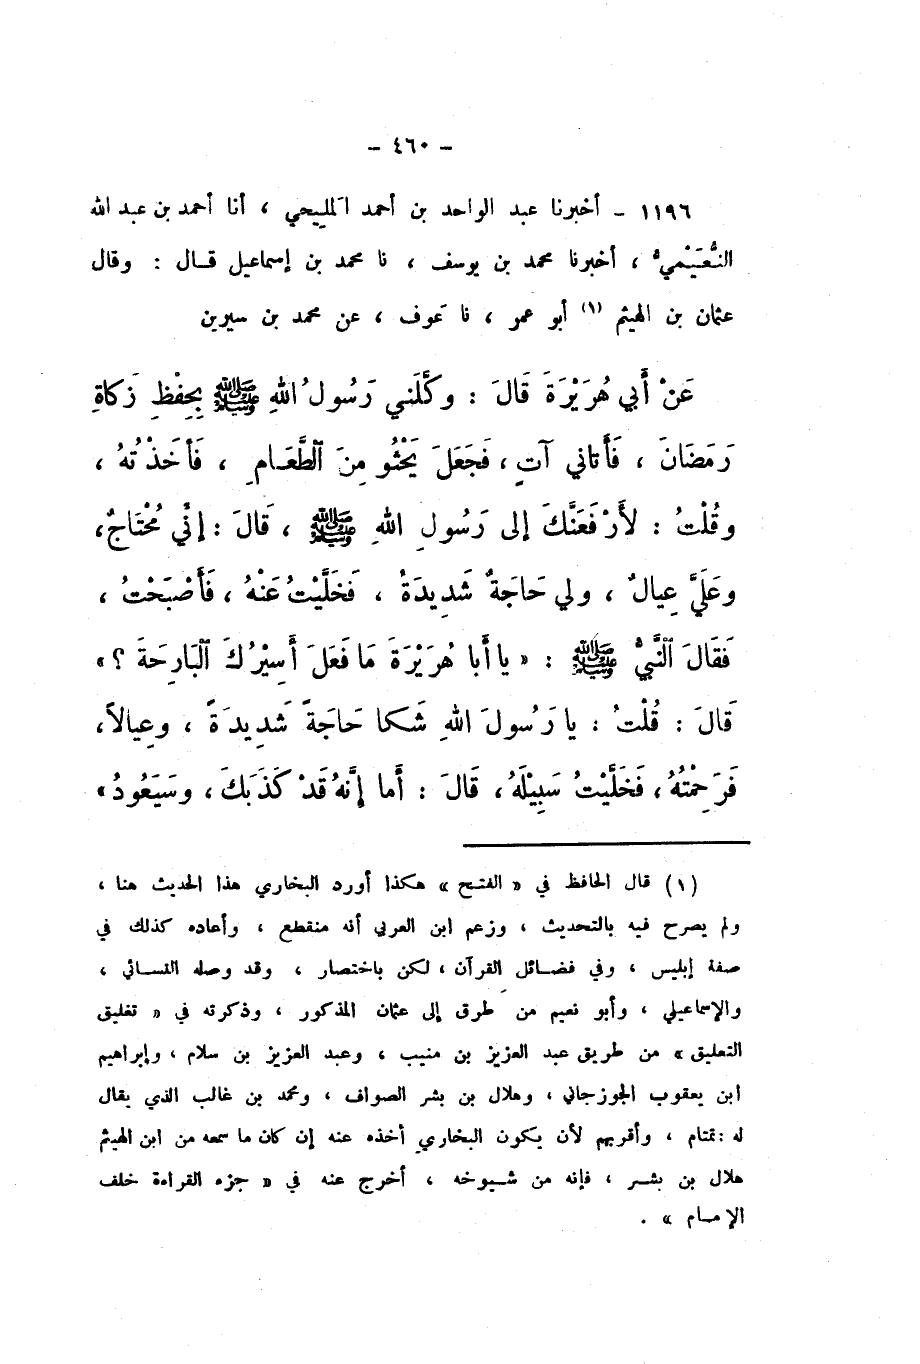 - ٤٦٠ -
١١٩٦ - أخبرنا عبد الواحد بن أحمد المليحي ، أنا أحمد بن عبد الله
النُّعَيْمي ، أخبرنا محمد بن يوسف ، نا محمد بن إسماعيل قال : وقال
عثمان بن الهيثم (١) أبو عمر ، نا عوف ، عن محمد بن سيرين
عَنْ أَبي هُرَيْرَةَ قَالَ : وكَّلَني رَسُولُ اللهِ ﷺ بِحِفْظِ زَكاةِ
رَمَضَانَ ، فَأَتاني آتٍ ، فَجَعَلَ يَحْثُو مِنَ الطَّعَامِ ، فَأَخَذْتُهُ ،
وقُلْتُ : لأَرْفَعَنَّكَ إلى رَسُولِ اللهِ ﷺ ، قَالَ : إنِّي مُحْتَاجٌ ،
وعَلَيَّ عِيالٌ ، ولي حَاجَةٌ شَدِيدَةٌ ، فَخَلَّيْتُ عَنْهُ ، فَأَصْبَحْتُ ،
فَقَالَ النَّبيُّ ﷺ : « يا أَبا هُرَيْرَةَ مَا فَعَلَ أَسِيْرُكَ البَارِحَةَ ؟ »
قَالَ : قُلْتُ : يا رَسُولَ اللهِ شَكا حَاجَةً شَدِيدَةً ، وعِيالاً ،
فَرَحِمْتُهُ ، فَخَلَّيْتُ سَبِيْلَهُ ، قَالَ : أَما إنَّهُ قَدْ كَذَبَكَ ، وسَيَعُودُ »
(١) قال الحافظ في « الفتح » هكذا أورد البخاري هذا الحديث هنا ،
ولم يصرح فيه بالتحديث ، وزعم ابن العربي أنه منقطع ، وأعاده كذلك في
صفة إبليس ، وفي فضائل القرآن ، لكن باختصار ، وقد وصله النسائي ،
والإسماعيلي ، وأبو نعيم من طرق إلى عثمان المذكور ، وذكرته في « تغليق
التعليق » من طريق عبد العزيز بن منيب ، وعبد العزيز بن سلام ، وإبراهيم
ابن يعقوب الجوزجاني ، وهلال بن بشر الصواف ، ومحمد بن غالب الذي يقال
له : تمتام ، وأقربهم لأن يكون البخاري أخذه عنه إن كان ما سمعه من ابن الهيثم
هلال بن بشر ، فإنه من شيوخه ، أخرج عنه في « جزء القراءة خلف
الإمام » .